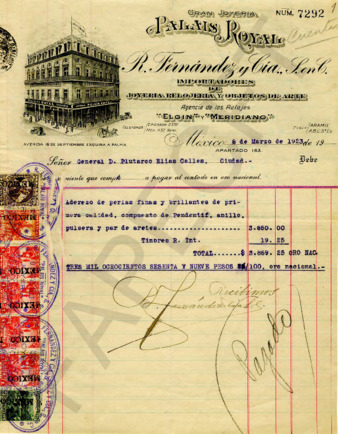 GRAN JOYERIA
NUM. 7292
PALAIS ROYAL
R. Fernández y Cía., S. en C.
IMPORTADORES
DE
JOYERIA, RELOJERIA Y OBJETOS DE ARTE
Agencia de los Relojes
"ELGIN" Y "MERIDIANO"
AVENIDA 16 DE SEPTIEMBRE ESQUINA A PALMA
APARTADO 163
México 8 de Marzo de 1923, de 19
Señor General D. Plutarco Elías Calles, Ciudad.- Debe
a pagar al contado en oro nacional.
Aderezo de perlas finas y brillantes de pri-
mera calidad, compuesto de Pendentif, anillo,
pulsera y par de aretes 3.850.00
Timbres R. Int. 19.25
TOTAL $ 3.869.25 ORO NAC.
TRES MIL OCHOCIENTOS SESENTA Y NUEVE PESOS 25/100, oro nacional.-
Recibimos
Pagado
MEXICO
MEXICO
MEXICO
MEXICO